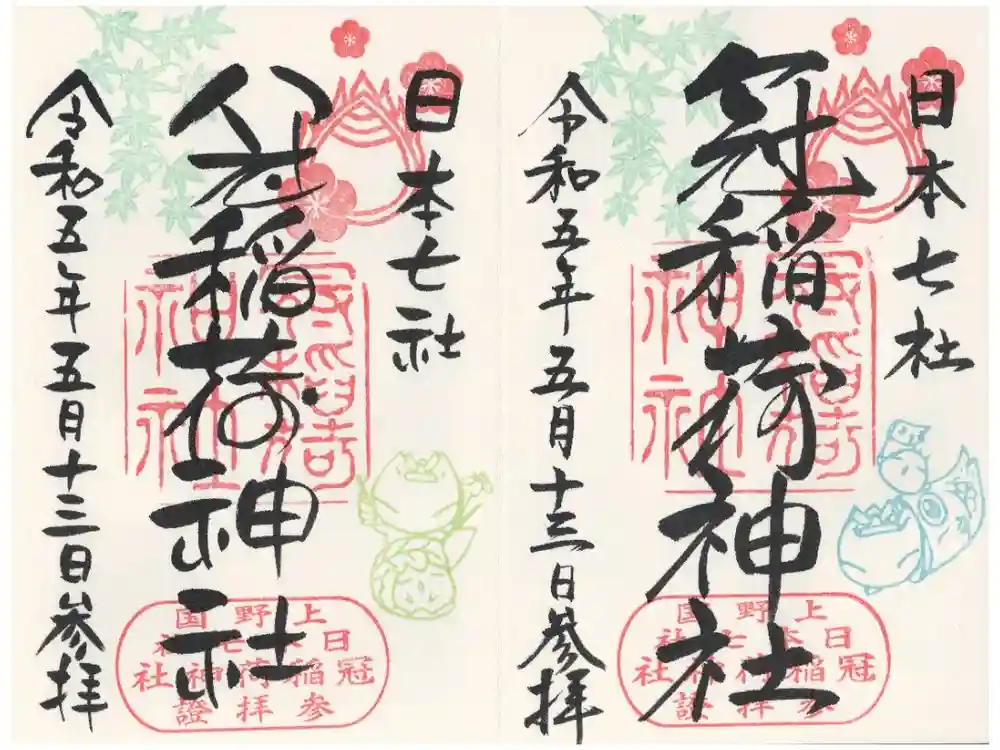 日本七社
冠稲荷神社
令和五年五月十三日参拝
冠稲荷
神社
上野国
日本七社
冠稲荷神社
参拝證
日本七社
稲荷神社
令和五年五月十三日参拝
冠稲荷
神社
上野国
日本七社
冠稲荷神社
参拝證